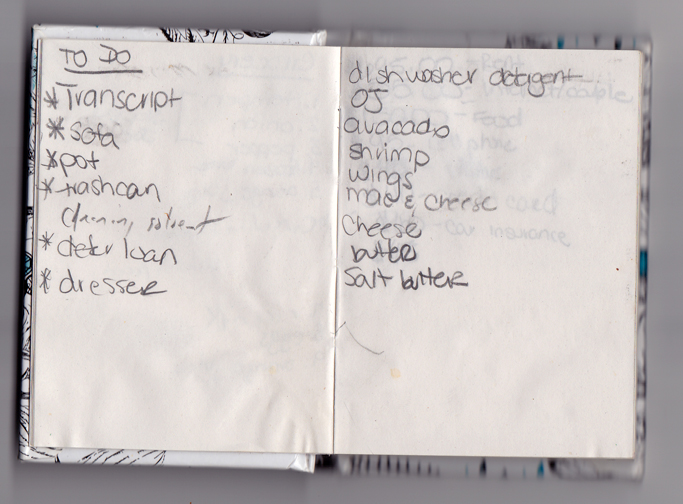 TO DO
*Transcript
*sofa
*pot
*trashcan
cleaning solvent
*defer loan
*dresser
dishwasher detergent
OJ
avacado
shrimp
wings
mac & cheese
Cheese
butter
Salt butter